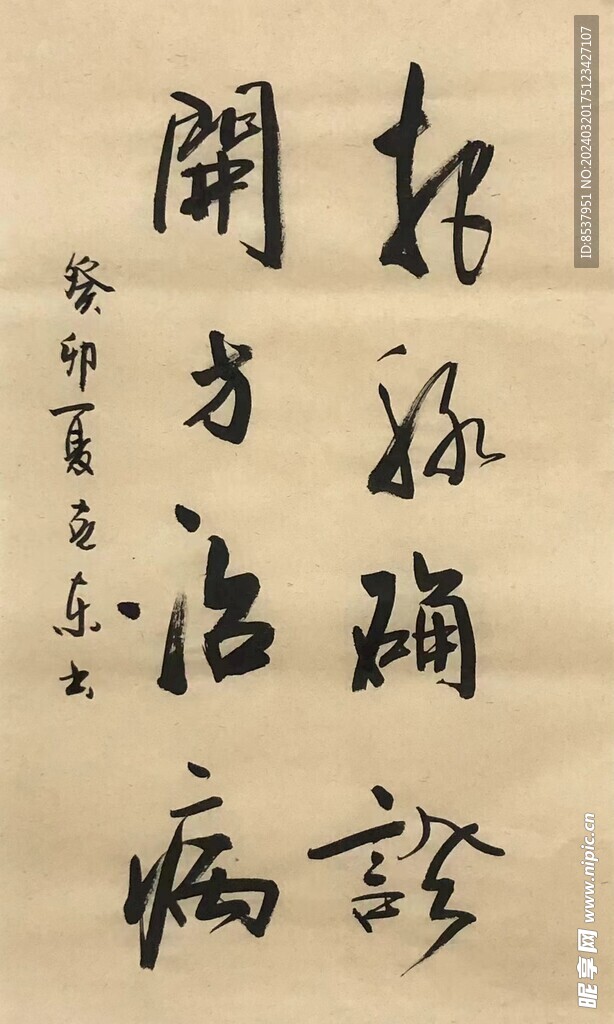 把脉确證
開方治病
癸卯夏东书
ID:8537951 NO:20240320175123427107
昵享网 www.nipic.cn